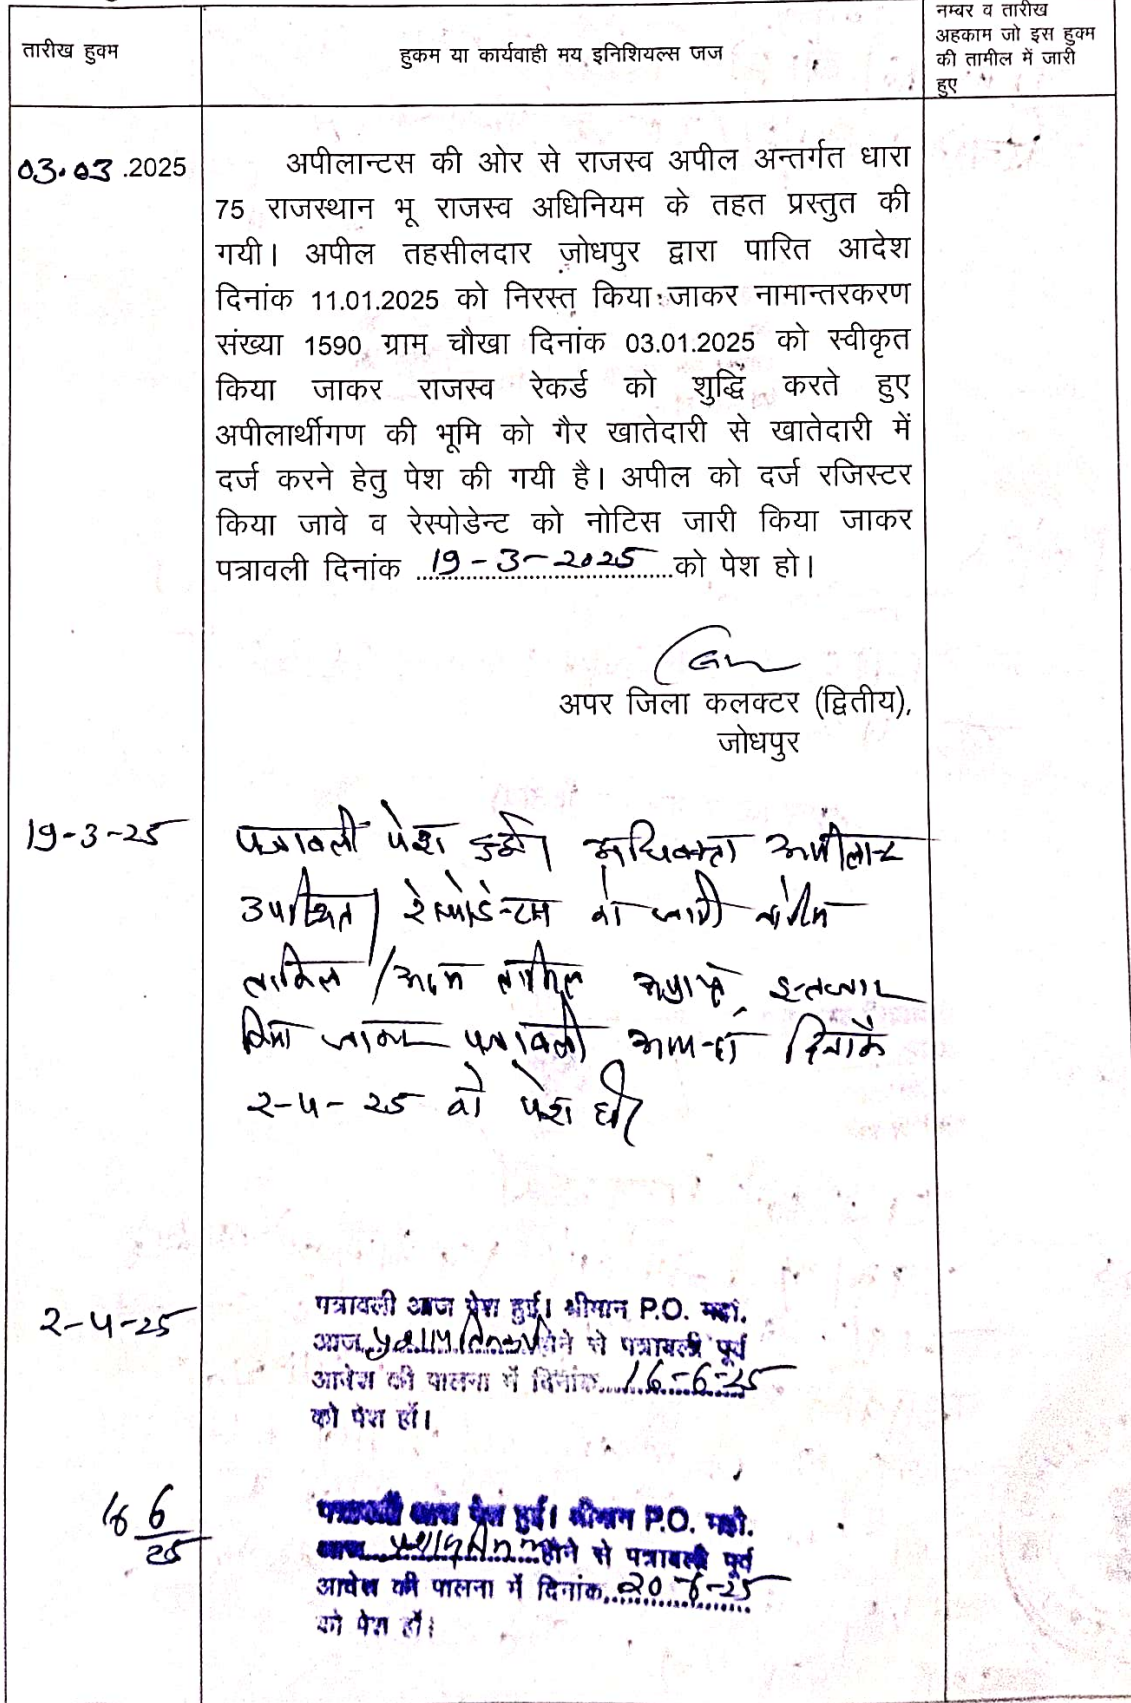 तारीख हुक्म
हुकम या कार्यवाही मय इनिशियल्स जज
नम्बर व तारीख
अहकाम जो इस हुक्म
की तामील में जारी
हुए
03.03.2025
अपीलान्टस की ओर से राजस्व अपील अन्तर्गत धारा
75 राजस्थान भू राजस्व अधिनियम के तहत प्रस्तुत की
गयी। अपील तहसीलदार जोधपुर द्वारा पारित आदेश
दिनांक 11.01.2025 को निरस्त किया जाकर नामान्तरकरण
संख्या 1590 ग्राम चौखा दिनांक 03.01.2025 को स्वीकृत
किया जाकर राजस्व रेकर्ड को शुद्धि करते हुए
अपीलार्थीगण की भूमि को गैर खातेदारी से खातेदारी में
दर्ज करने हेतु पेश की गयी है। अपील को दर्ज रजिस्टर
किया जावे व रेस्पोडेन्ट को नोटिस जारी किया जाकर
पत्रावली दिनांक 19-3-2025 को पेश हो।
अपर जिला कलक्टर (द्वितीय),
जोधपुर
19-3-25
पत्रावली पेश हुई। अधिवक्ता अपीलान्ट
उपस्थित। रेस्पोडेन्टस को जारी नोटिस
तामिल / अदम तामिल अप्राप्त, इन्तजार
किया जाकर पत्रावली दिनांक
2-4-25 को पेश हो।
2-4-25
पत्रावली आज पेश हुई। श्रीमान P.O. महो.
आज होने से पत्रावली पूर्व
आदेश की पालना में दिनांक 16-6-25
को पेश हों।
16 6/25
पत्रावली आज पेश हुई। श्रीमान P.O. महो.
आज होने से पत्रावली पूर्व
आदेश की पालना में दिनांक 20-6-25
को पेश हों।